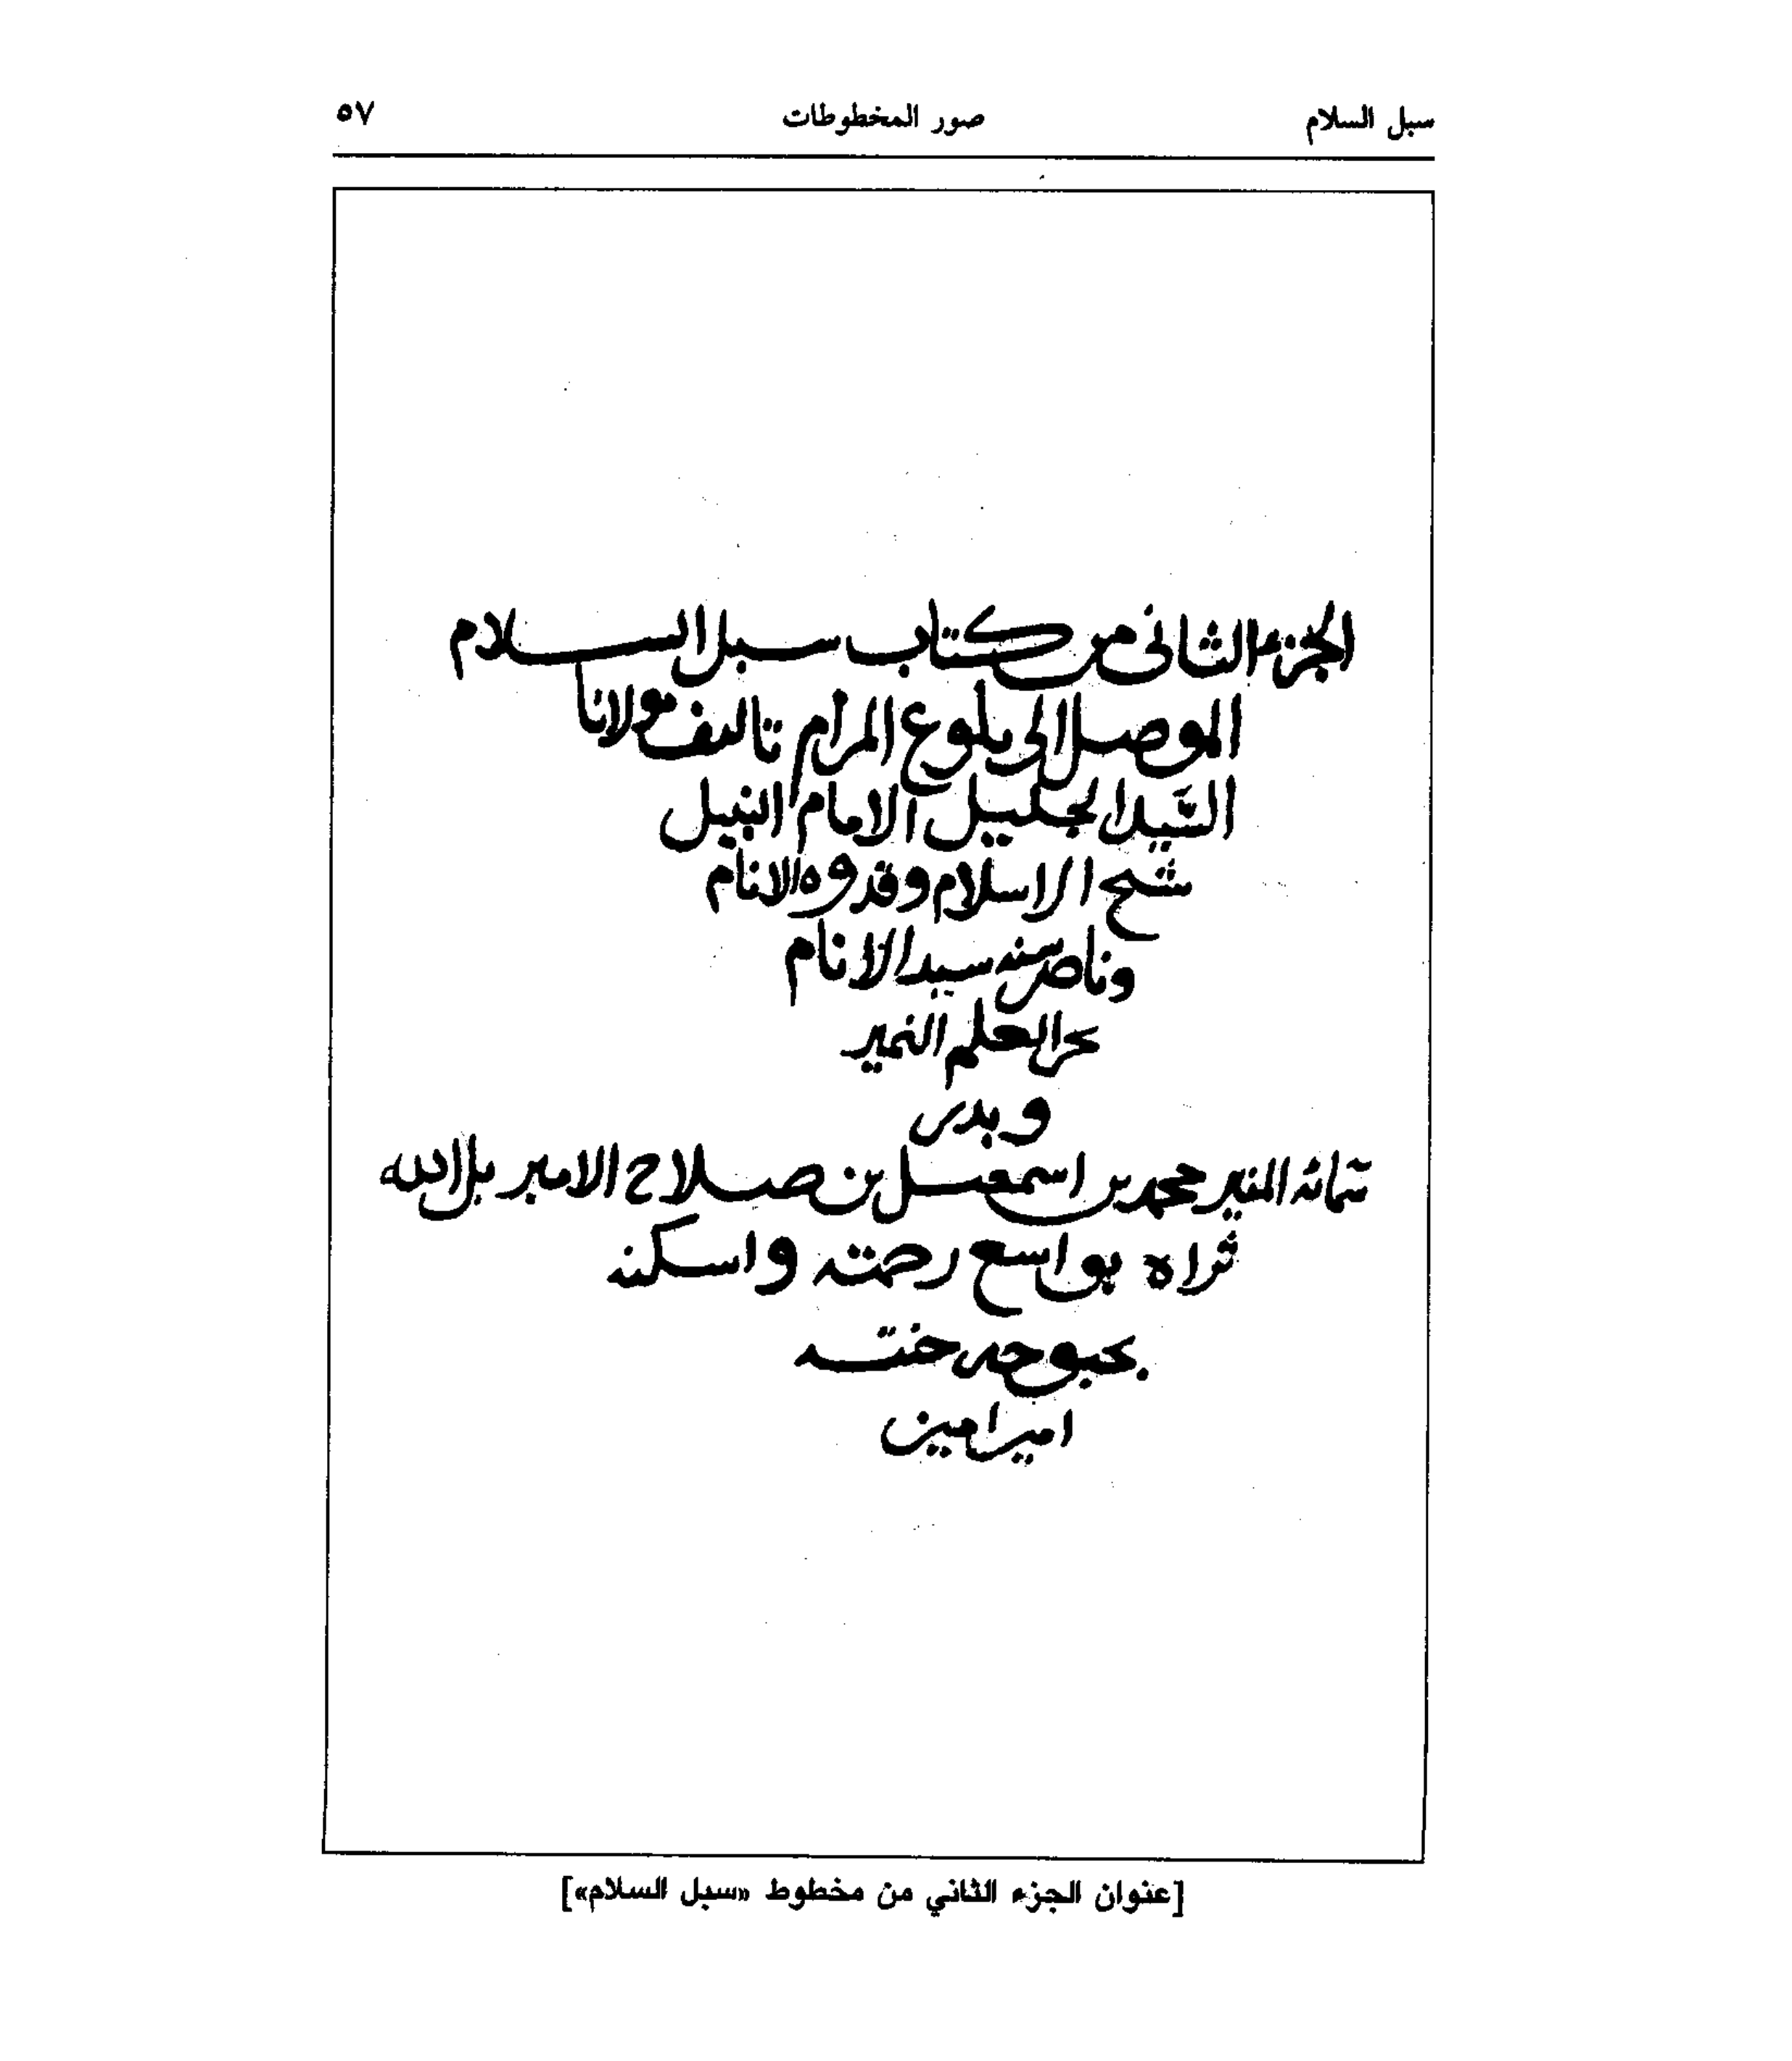 سبل السلام صور المخطوطات ٥٧
الجزء الثانى من كتاب سبل السلام
الموصل الى بلوغ المرام تاليف مولانا
السيد الجليل الامام النبيل
شيخ الاسلام وقدوه الانام
وناصر سنه سيد الانام
بحر العلم النمير
وبدر
سمائه المنير محمد بن اسمعيل بن صلاح الامير بل الله
ثراه بواسع رحمته واسكنه
بحبوحه جنته
امين امين
[عنوان الجزء الثاني من مخطوط «سبل السلام»]